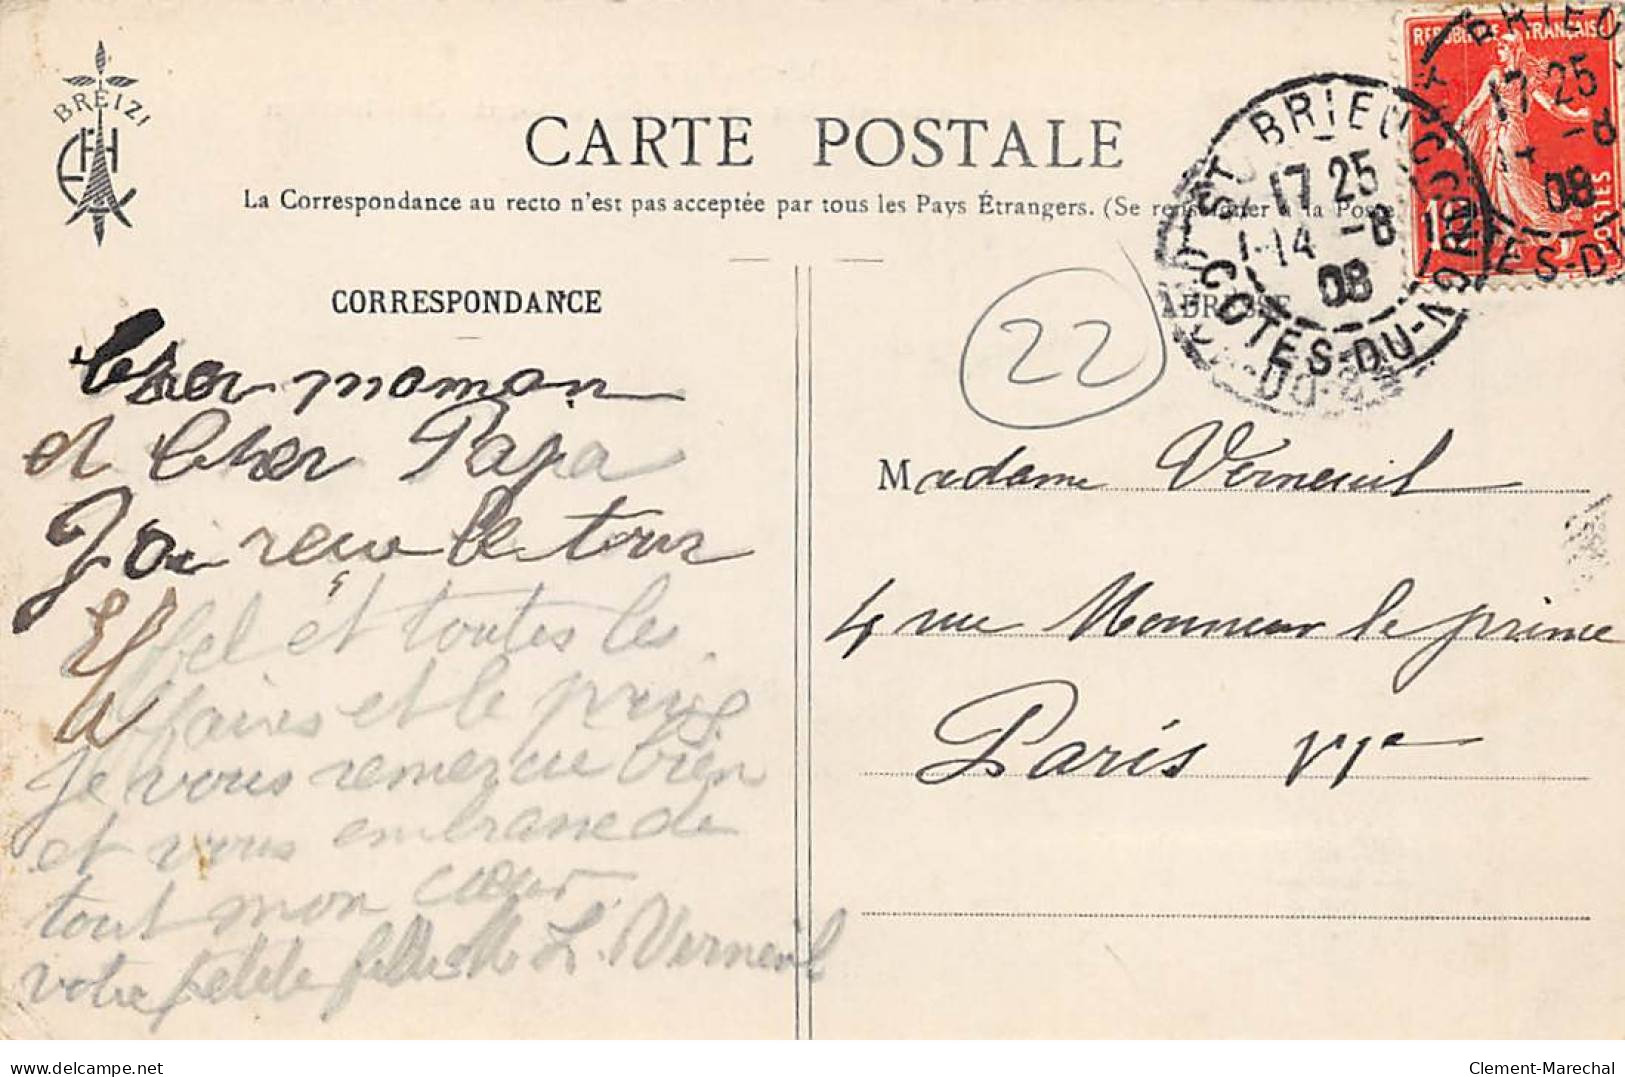 BREIZ!
CARTE POSTALE
La Correspondance au recto n'est pas acceptée par tous les Pays Étrangers. (Se renseigner à la Poste
RÉPUBLIQUE FRANÇAISE
POSTES
10
ST BRIEUC
17 25
14 -8
08
COTES-DU-NORD
BRIEUC
17 25
-8
08
ES-DU
CORRESPONDANCE
ADRESSE
22
Cher maman
et Cher Papa
J'ai reçu le tour
Effel et toutes les
affaires et le
Je vous remercie bien
et vous embrasse de
tout mon cœur
votre petite fille L. Verneuil
Madame Verneuil
4 rue Monsieur le prince
Paris VIe
delcampe.net
Clement-Marechal